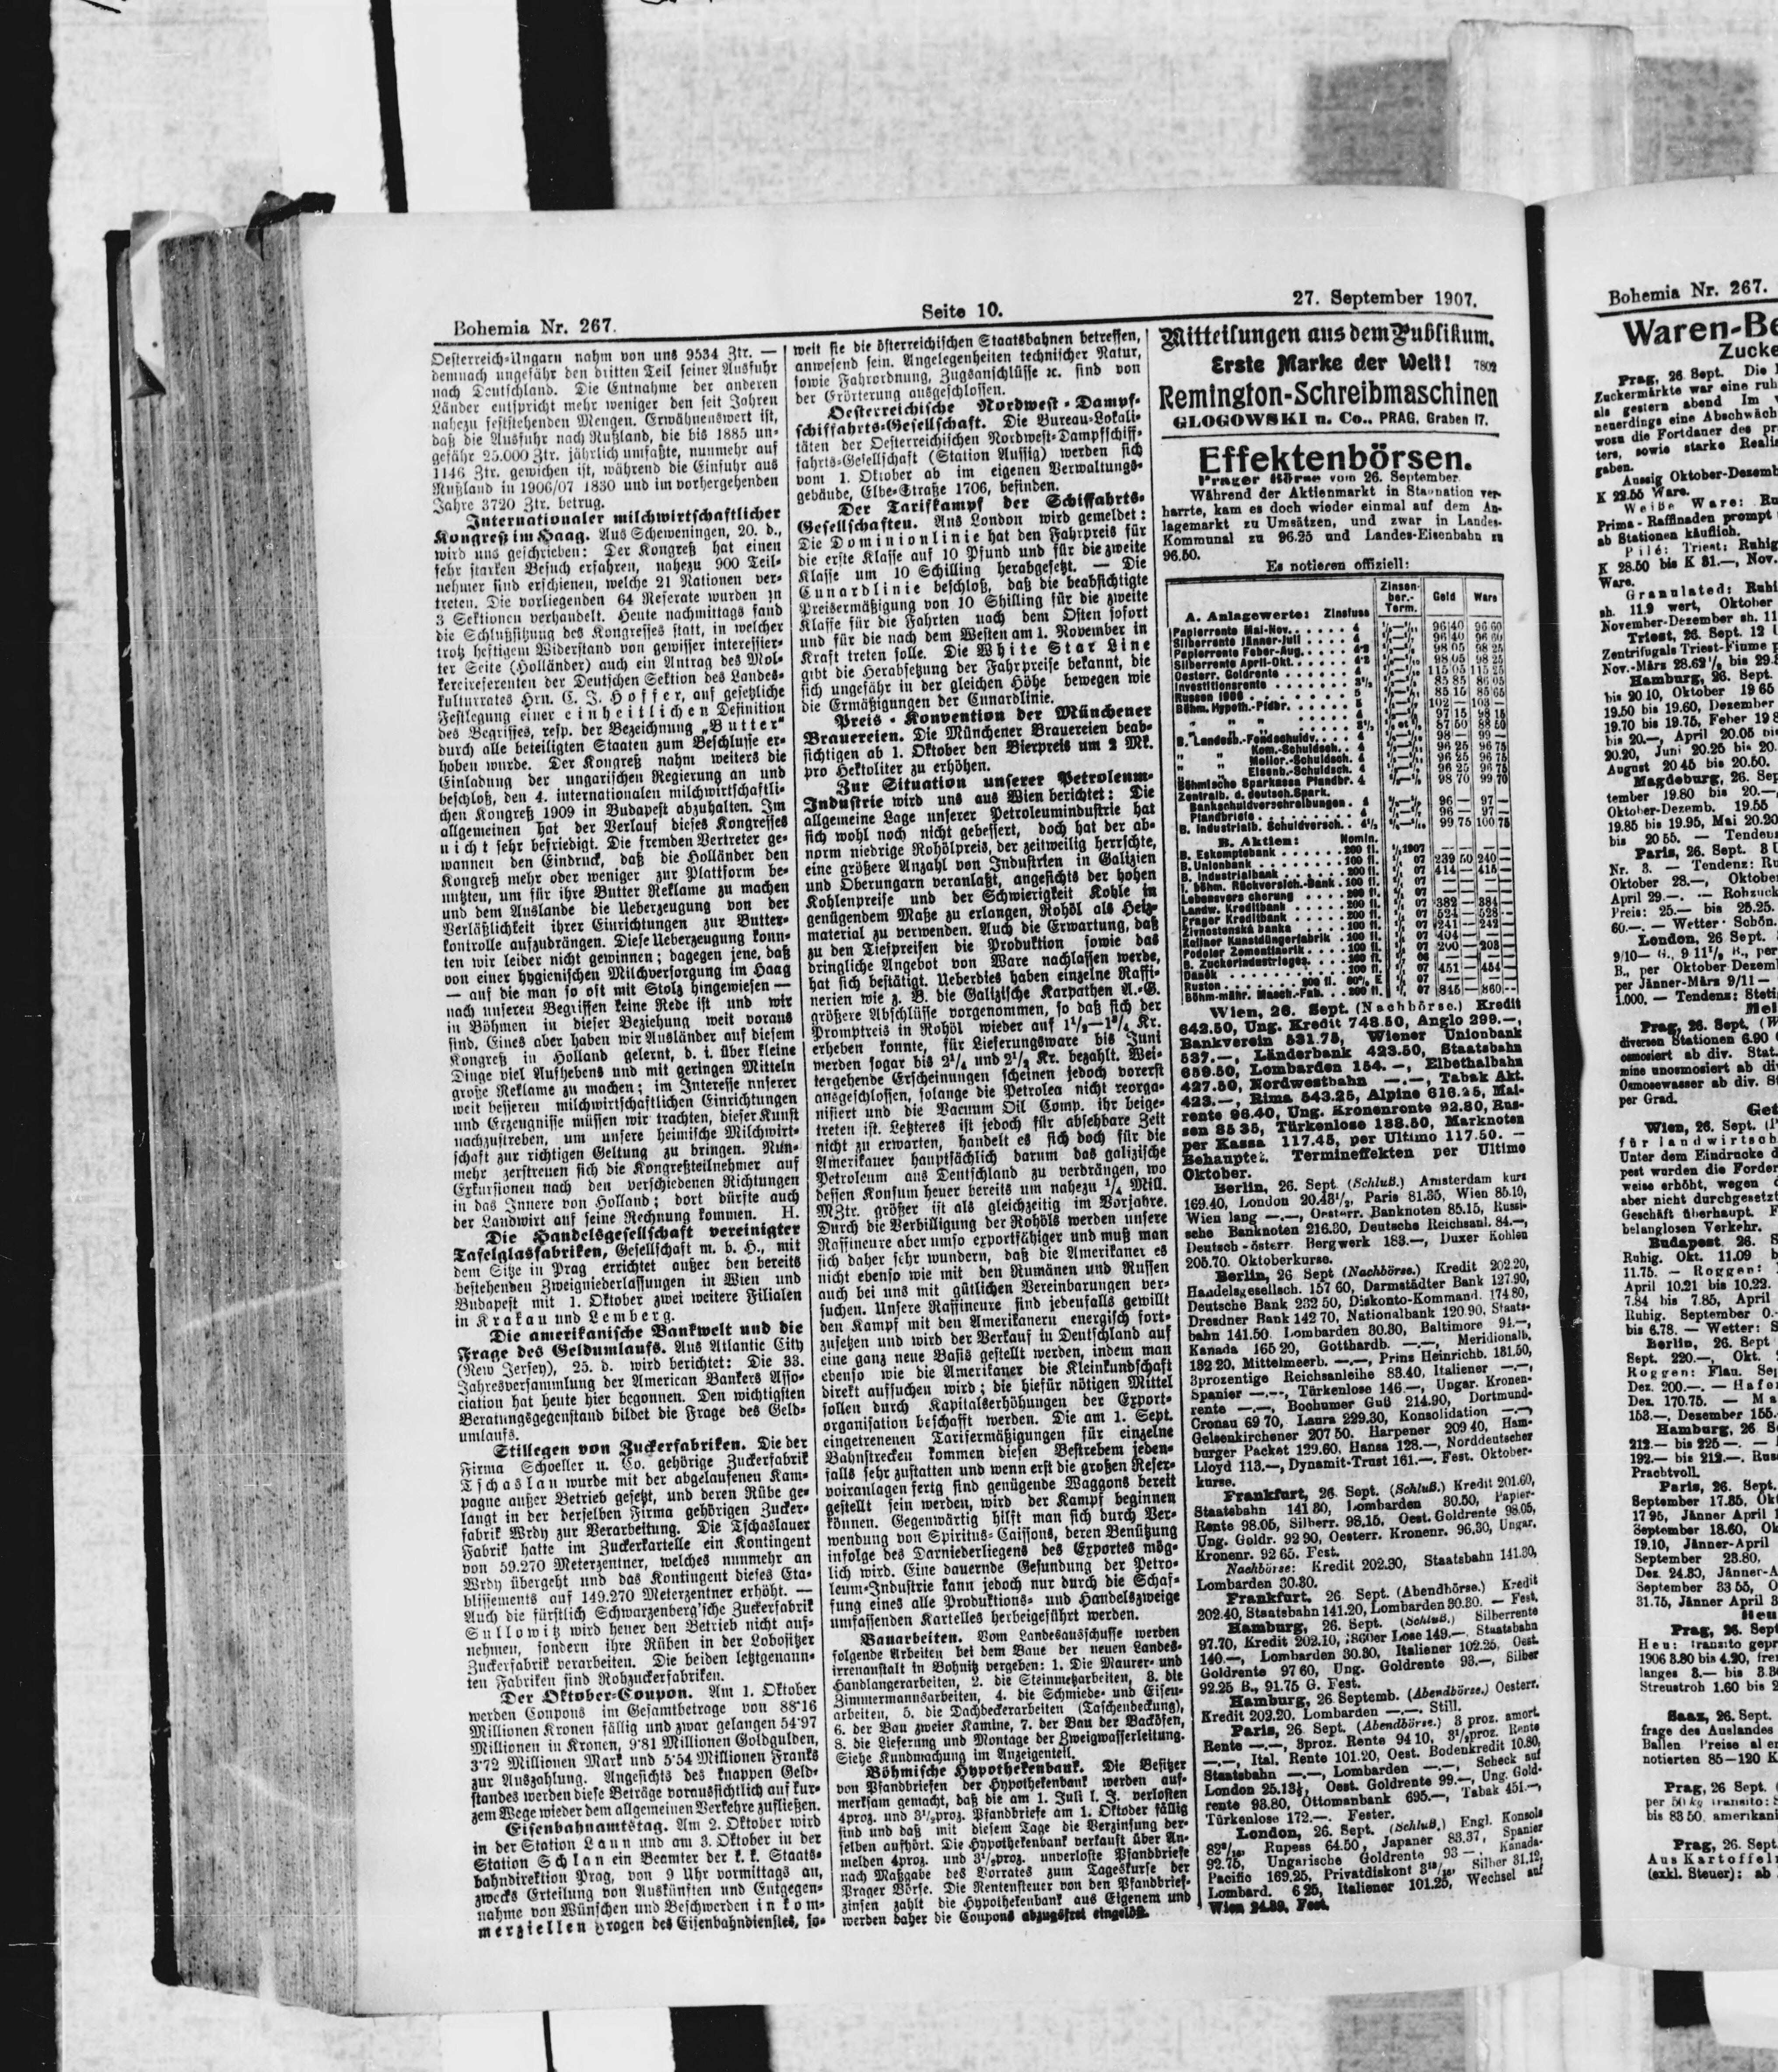 Bohemia Nr. 267.
Seite 10.
27. September 1907.
Oesterreich-Ungarn nahm von uns 9534 Ztr. —
demnach ungefähr den dritten Teil seiner Ausfuhr
nach Deutschland. Die Entnahme der anderen
Länder entspricht mehr weniger den seit Jahren
nahezu feststehenden Mengen. Erwähnenswert ist,
daß die Ausfuhr nach Rußland, die bis 1885 un-
gefähr 25.000 Ztr. jährlich umfaßte, nunmehr auf
1146 Ztr. gewichen ist, während die Einfuhr aus
Rußland in 1906/07 1830 und im vorhergehenden
Jahre 3720 Ztr. betrug.
Internationaler milchwirtschaftlicher
Kongreß im Haag. Aus Scheweningen, 20. d.,
wird uns geschrieben: Der Kongreß hat einen
sehr starken Besuch erfahren, nahezu 900 Teil-
nehmer sind erschienen, welche 21 Nationen ver-
treten. Die vorliegenden 64 Referate wurden in
3 Sektionen verhandelt. Heute nachmittags fand
die Schlußsitzung des Kongresses statt, in welcher
trotz heftigem Widerstand von gewisser interessier-
ter Seite (Holländer) auch ein Antrag des Mol-
kereireferenten der Deutschen Sektion des Landes-
kulturrates Hrn. C. J. Hoffer, auf gesetzliche
Festlegung einer einheitlichen Definition
des Begriffes, resp. der Bezeichnung „Butter"
durch alle beteiligten Staaten zum Beschlusse er-
hoben wurde. Der Kongreß nahm weiters die
Einladung der ungarischen Regierung an und
beschloß, den 4. internationalen milchwirtschaftli-
chen Kongreß 1909 in Budapest abzuhalten. Im
allgemeinen hat der Verlauf dieses Kongresses
nicht sehr befriedigt. Die fremden Vertreter ge-
wannen den Eindruck, daß die Holländer den
Kongreß mehr oder weniger zur Plattform be-
nutzten, um für ihre Butter Reklame zu machen
und dem Auslande die Ueberzeugung von der
Verläßlichkeit ihrer Einrichtungen zur Butter-
kontrolle aufzudrängen. Diese Ueberzeugung konn-
ten wir leider nicht gewinnen; dagegen jene, daß
von einer hygienischen Milchversorgung im Haag
— auf die man so oft mit Stolz hingewiesen —
nach unseren Begriffen keine Rede ist und wir
in Böhmen in dieser Beziehung weit voraus
sind. Eines aber haben wir Ausländer auf diesem
Kongreß in Holland gelernt, d. i. über kleine
Dinge viel Aufhebens und mit geringen Mitteln
große Reklame zu machen; im Interesse unserer
weit besseren milchwirtschaftlichen Einrichtungen
und Erzeugnisse müssen wir trachten, dieser Kunst
nachzustreben, um unsere heimische Milchwirt-
schaft zur richtigen Geltung zu bringen. Nun-
mehr zerstreuen sich die Kongreßteilnehmer auf
Exkursionen nach den verschiedenen Richtungen
in das Innere von Holland; dort dürfte auch
der Landwirt auf seine Rechnung kommen. H.
Die Handelsgesellschaft vereinigter
Tafelglasfabriken, Gesellschaft m. b. H., mit
dem Sitze in Prag errichtet außer den bereits
bestehenden Zweigniederlassungen in Wien und
Budapest mit 1. Oktober zwei weitere Filialen
in Krakau und Lemberg.
Die amerikanische Bankwelt und die
Frage des Geldumlaufs. Aus Atlantic City
(New Jersey), 25. d. wird berichtet: Die 33.
Jahresversammlung der American Bankers Asso-
ciation hat heute hier begonnen. Den wichtigsten
Beratungsgegenstand bildet die Frage des Geld-
umlaufs.
Stillegen von Zuckerfabriken. Die der
Firma Schoeller u. Co. gehörige Zuckerfabrik
Tschaslau wurde mit der abgelaufenen Kam-
pagne außer Betrieb gesetzt, und deren Rübe ge-
langt in der derselben Firma gehörigen Zucker-
fabrik Wrdy zur Verarbeitung. Die Tschaslauer
Fabrik hatte im Zuckerkartelle ein Kontingent
von 59.270 Meterzentner, welches nunmehr an
Wrdy übergeht und das Kontingent dieses Eta-
blissements auf 149.270 Meterzentner erhöht. —
Auch die fürstlich Schwarzenberg'sche Zuckerfabrik
Sullowitz wird heuer den Betrieb nicht auf-
nehmen, sondern ihre Rüben in der Lobositzer
Zuckerfabrik verarbeiten. Die beiden letztgenann-
ten Fabriken sind Rohzuckerfabriken.
Der Oktober-Coupon. Am 1. Oktober
werden Coupons im Gesamtbetrage von 88·16
Millionen Kronen fällig und zwar gelangen 54·97
Millionen in Kronen, 9·81 Millionen Goldgulden,
3·72 Millionen Mark und 5·54 Millionen Franks
zur Auszahlung. Angesichts des knappen Geld-
standes werden diese Beträge voraussichtlich auf kur-
zem Wege wieder dem allgemeinen Verkehre zufließen.
Eisenbahnamtstag. Am 2. Oktober wird
in der Station Laun und am 3. Oktober in der
Station Schlan ein Beamter der k. k. Staats-
bahndirektion Prag, von 9 Uhr vormittags an,
zwecks Erteilung von Auskünften und Entgegen-
nahme von Wünschen und Beschwerden in kom-
merziellen Fragen des Eisenbahndienstes, so-
weit sie die österreichischen Staatsbahnen betreffen,
anwesend sein. Angelegenheiten technischer Natur,
sowie Fahrordnung, Zugsanschlüsse ꝛc. sind von
der Erörterung ausgeschlossen.
Oesterreichische Nordwest-Dampf-
schiffahrts-Gesellschaft. Die Bureau-Lokali-
täten der Oesterreichischen Nordwest-Dampfschiff-
fahrts-Gesellschaft (Station Aussig) werden sich
vom 1. Oktober ab im eigenen Verwaltungs-
gebäude, Elbe-Straße 1706, befinden.
Der Tarifkampf der Schiffahrts-
Gesellschaften. Aus London wird gemeldet:
Die Dominionlinie hat den Fahrpreis für
die erste Klasse auf 10 Pfund und für die zweite
Klasse um 10 Schilling herabgesetzt. — Die
Cunardlinie beschloß, daß die beabsichtigte
Preisermäßigung von 10 Shilling für die zweite
Klasse für die Fahrten nach dem Osten sofort
und für die nach dem Westen am 1. November in
Kraft treten solle. Die White Star Line
gibt die Herabsetzung der Fahrpreise bekannt, die
sich ungefähr in der gleichen Höhe bewegen wie
die Ermäßigungen der Cunardlinie.
Preis-Konvention der Münchener
Brauereien. Die Münchener Brauereien beab-
sichtigen ab 1. Oktober den Bierpreis um 2 Mk.
pro Hektoliter zu erhöhen.
Zur Situation unserer Petroleum-
Industrie wird uns aus Wien berichtet: Die
allgemeine Lage unserer Petroleumindustrie hat
sich wohl noch nicht gebessert, doch hat der ab-
norm niedrige Rohölpreis, der zeitweilig herrschte,
eine größere Anzahl von Industrien in Galizien
und Oberungarn veranlaßt, angesichts der hohen
Kohlenpreise und der Schwierigkeit Kohle in
genügendem Maße zu erlangen, Rohöl als Heiz-
material zu verwenden. Auch die Erwartung, daß
zu den Tiefpreisen die Produktion sowie das
dringliche Angebot von Ware nachlassen werde,
hat sich bestätigt. Ueberdies haben einzelne Raffi-
nerien wie z. B. die Galizische Karpathen A.-G.
größere Abschlüsse vorgenommen, so daß sich der
Promptreis in Rohöl wieder auf 1½—1¾ Kr.
erheben konnte, für Lieferungsware bis Juni
werden sogar bis 2¼ und 2½ Kr. bezahlt. Wei-
tergehende Erscheinungen scheinen jedoch vorerst
ausgeschlossen, solange die Petrolea nicht reorga-
nisiert und die Vacuum Oil Comp. ihr beige-
treten ist. Letzteres ist jedoch für absehbare Zeit
nicht zu erwarten, handelt es sich doch für die
Amerikauer hauptsächlich darum das galizische
Petroleum aus Deutschland zu verdrängen, wo
dessen Konsum heuer bereits um nahezu ¼ Mill.
MZtr. größer ist als gleichzeitig im Vorjahre.
Durch die Verbilligung der Rohöls werden unsere
Raffineure aber umso exportfähiger und muß man
sich daher sehr wundern, daß die Amerikaner es
nicht ebenso wie mit den Rumänen und Russen
auch bei uns mit gütlichen Vereinbarungen ver-
suchen. Unsere Raffineure sind jedenfalls gewillt
den Kampf mit den Amerikanern energisch fort-
zusetzen und wird der Verkauf in Deutschland auf
eine ganz neue Basis gestellt werden, indem man
ebenso wie die Amerikaner die Kleinkundschaft
direkt aufsuchen wird; die hiefür nötigen Mittel
sollen durch Kapitalserhöhungen der Export-
organisation beschafft werden. Die am 1. Sept.
eingetrenenen Tarifermäßigungen für einzelne
Bahnstrecken kommen diesen Bestrebem jeden-
falls sehr zustatten und wenn erst die großen Reser-
voiranlagen fertig sind genügende Waggons bereit
gestellt sein werden, wird der Kampf beginnen
können. Gegenwärtig hilft man sich durch Ver-
wendung von Spiritus-Caissons, deren Benützung
infolge des Darniederliegens des Exportes mög-
lich wird. Eine dauernde Gesundung der Petro-
leum-Industrie kann jedoch nur durch die Schaf-
fung eines alle Produktions- und Handelszweige
umfassenden Kartelles herbeigeführt werden.
Bauarbeiten. Vom Landesausschusse werden
folgende Arbeiten bei dem Baue der neuen Landes-
irrenanstalt in Bohnitz vergeben: 1. Die Maurer- und
Handlangerarbeiten, 2. die Steinmetzarbeiten, 3. die
Zimmermannsarbeiten, 4. die Schmiede- und Eisen-
arbeiten, 5. die Dachdeckerarbeiten (Taschendeckung),
6. der Bau zweier Kamine, 7. der Bau der Backöfen,
8. die Lieferung und Montage der Zweigwasserleitung.
Siehe Kundmachung im Anzeigenteil.
Böhmische Hypothekenbank. Die Besitzer
von Pfandbriefen der Hypothekenbank werden auf-
merksam gemacht, daß die am 1. Juli l. J. verlosten
4proz. und 3½proz. Pfandbriefe am 1. Oktober fällig
sind und daß mit diesem Tage die Verzinsung der-
selben aufhört. Die Hypothekenbank verkauft über An-
melden 4proz. und 3½proz. unverloste Pfandbriefe
nach Maßgabe des Vorrates zum Tageskurse der
Prager Börse. Die Rentensteuer von den Pfandbrief-
zinsen zahlt die Hypothekenbank aus Eigenem und
werden daher die Coupons abzugsfrei eingelöst.
Mitteilungen aus dem Publikum.
Erste Marke der Welt! 7802
Remington-Schreibmaschinen
GLOGOWSKI u. Co., PRAG, Graben 17.
Effektenbörsen.
Prager Börse vom 26. September.
Während der Aktienmarkt in Stagnation ver-
harrte, kam es doch wieder einmal auf dem An-
lagemarkt zu Umsätzen, und zwar in Landes-
Kommunal zu 96.25 und Landes-Eisenbahn zu
96.50.
Es notieren offiziell:
A. Anlagewerte: Zinsfuss Zinsen-ber.-Term. Geld Ware
Papierrente Mai-Nov. 96 40 96 60
Silberrente Jänner-Juli 96 40 96 60
Papierrente Feber-Aug. 98 05 98 25
Silberrente April-Okt. 98 05 98 25
Oesterr. Goldrente 115 05 115 25
Investitionsrente 85 85 86 05
Russen 1906 85 15 85 65
Böhm. Hypoth.-Pfdbr. 102 — 103 —
97 15 98 15
87 50 88 50
B. Landesb.-Fondschuldv. 98 — 99 —
Kom.-Schuldsch. 4 96 25 96 75
Melior.-Schuldsch. 4 96 25 96 75
Eisenb.-Schuldsch. 4 96 25 96 75
Böhmische Sparkassa Pfandbr. 4 98 70 99 70
Zentralb. d. deutsch. Spark.
Bankschuldverschreibungen 96 — 97 —
Pfandbriefe 96 — 97 —
B. Industrialb. Schuldversch. 4½ 99 75 100 75
B. Aktien: Nomin.
B. Eskomptebank 200 fl.
B. Unionbank 239 50 240 —
B. Industrialbank 414 — 415 —
I. böhm. Rückversich.-Bank
Landw. Kreditbank
Prager Kreditbank
Živnostenská banka
Kolíner Kunstdüngerfabrik
Podoler Zementfabrik
B. Zuckerindustrieges.
Daněk
Ruston
Böhm-mähr. Masch.-Fab. 845 — 860 —
Wien, 26. Sept. (Nachbörse.) Kredit
642.50, Ung. Kredit 748.50, Anglo 299.—,
Bankverein 531.75, Wiener Unionbank
537.—, Länderbank 423.50, Staatsbahn
659.50, Lombarden 154.—, Elbethalbahn
427.50, Nordwestbahn —.—, Tabak Akt.
423.—, Rima 543.25, Alpine 616.25, Mai-
rente 96.40, Ung. Kronenrente 92.80, Rus-
sen 85 35, Türkenlose 188.50, Marknoten
per Kassa 117.45, per Ultimo 117.50. —
Behauptet. Termineffekten per Ultimo
Oktober.
Berlin, 26. Sept. (Schluß.) Amsterdam kurs
169.40, London 20.43½, Paris 81.35, Wien 85.10,
Wien lang —.—, Oesterr. Banknoten 85.15, Russi-
sche Banknoten 216.30, Deutsche Reichsanl. 84.—,
Deutsch-österr. Bergwerk 183.—, Duxer Kohlen
205.70. Oktoberkurse.
Berlin, 26 Sept (Nachbörse.) Kredit 202.20,
Handelsgesellsch. 157 60, Darmstädter Bank 127.90,
Deutsche Bank 232 50, Diskonto-Kommand. 174 80,
Dresdner Bank 142 70, Nationalbank 120 90, Staats-
bahn 141.50, Lombarden 30.30, Baltimore 91.—,
Kanada 165 20, Gotthardb. —.—, Meridionalb.
132 20, Mittelmeerb. —.—, Prins Heinrichb. 131.50,
3prozentige Reichsanleihe 83.40, Italiener —.—,
Spanier —.—, Türkenlose 146.—, Ungar. Kronen-
rente —.—, Bochumer Guß 214.90, Dortmund-
Cronau 69 70, Laura 229.30, Konsolidation —.—,
Gelsenkirchener 207 50, Harpener 209 40, Ham-
burger Packet 129.60, Hansa 128.—, Norddeutscher
Lloyd 113.—, Dynamit-Trust 161.—. Fest. Oktober-
kurse.
Frankfurt, 26. Sept. (Schluß.) Kredit 201.60,
Staatsbahn 141 30, Lombarden 30.50, Papier-
Rente 98.05, Silberr. 98.15, Oest. Goldrente 98.05,
Ung. Goldr. 92 90, Oesterr. Kronenr. 96.30, Ungar.
Kronenr. 92 65. Fest.
Nachbörse: Kredit 202.30, Staatsbahn 141.30,
Lombarden 30.30.
Frankfurt, 26 Sept. (Abendbörse.) Kredit
202.40, Staatsbahn 141.20, Lombarden 30.30. — Fest.
Hamburg, 26. Sept. (Schluß.) Silberrente
97.70, Kredit 202.10, 1860er Lose 149.—, Staatsbahn
140.—, Lombarden 30.30, Italiener 102.25, Oest.
Goldrente 97 60, Ung. Goldrente 93.—, Silber
92.25 B., 91.75 G. Fest.
Hamburg, 26. Septemb. (Abendbörse.) Oesterr.
Kredit 202.20. Lombarden —.—. Still.
Paris, 26 Sept. (Abendbörse.) 3 proz. amort.
Rente —.—, 3proz. Rente 94 10, 3½proz. Rente
—.—, Ital. Rente 101.20, Oest. Bodenkredit 10.80,
Staatsbahn —.—, Lombarden —.—, Scheck auf
London 25.13½, Oest. Goldrente 99.—, Ung. Gold-
rente 93.80, Ottomanbank 695.—, Tabak 451.—,
Türkenlose 172.—. Fester.
London, 26. Sept. (Schluß.) Engl. Konsols
Rupees 64.50, Japaner 83.37, Spanier
92.75, Ungarische Goldrente 93 —, Kanada-
Pacific 169.25, Privatdiskont Silber 31.12,
Lombard. 6 25, Italiener 101.25, Wechsel auf
Wien 24.39, Fest.
Bohemia Nr. 267.
Waren-Be
Zucke
Prag, 26 Sept. Die
Zuckermärkte war eine ruh
als gestern abend Im
neuerdings eine Abschwäch
wozu die Fortdauer des pr
ters, sowie starke Realis
gaben.
Aussig Oktober-Dezemb
K 22.55 Ware.
Weiße Ware: Ru
Prima-Raffinaden prompt
ab Stationen käuflich.
Pilé: Triest: Ruhig
K 28.50 bis K 31.—, Nov.
Ware.
Granulated: Ruhi
sh. 11.9 wert, Oktober
November-Dezember sh. 11
Triest, 26. Sept. 12 U
Zentrifugals Triest-Fiume p
Nov.-März 28.62½ bis 29.
Hamburg, 26. Sept.
bis 20 10, Oktober 19 65
19.50 bis 19.60, Dezember
19.70 bis 19.75, Feber 19 8
bis 20.—, April 20.05 bis
20.20, Juni 20.25 bis 20.
August 20 45 bis 20.50.
Magdeburg, 26. Sep
tember 19.80 bis 20.—,
Oktober-Dezemb. 19.55
19.85 bis 19.95, Mai 20.20
bis 20 55. — Tendenz
Paris, 26. Sept. 3 U
Nr. 3. — Tendenz: Ru
Oktober 28.—, Oktober
April 29.—. — Rohzuck
Preis: 25.— bis 25.25.
60.—. — Wetter: Schön.
London, 26 Sept.
9/10— G., 9 11½ B., per
B., per Oktober Dezem
per Jänner-März 9/11 —
1.000. — Tendenz: Steti
Mel
Prag, 26. Sept. (W
diversen Stationen 6.90
osmosiert ab div. Stat.
mine unosmosiert ab di
Osmosewasser ab div. St
per Grad.
Get
Wien, 26. Sept. (P
für landwirtsch
Unter dem Eindrucke d
pest wurden die Forder
weise erhöht, wegen
aber nicht durchgesetzt
Geschäft überhaupt. F
belanglosen Verkehr.
Budapest 26. S
Ruhig. Okt. 11.09 b
11.75. — Roggen:
April 10.21 bis 10.22.
7.84 bis 7.85, April
Ruhig. September 0.—
bis 6.78. — Wetter: S
Berlin, 26. Sept
Sept. 220.—, Okt.
Roggen: Flau. Sep
Dez. 200.—. — Hafer
Dez. 170.75. — Ma
153.—, Dezember 155.
Hamburg, 26 S
212.— bis 225 —. —
192.— bis 212.—. Russ
Prachtvoll.
Paris, 26. Sept.
September 17.85, Okt
17 95, Jänner April 1
September 18.60, Ok
19.10, Jänner-April
September 23.80,
Dez. 24.30, Jänner-A
September 33 55, O
31.75, Jänner April 3
Heu
Prag, 26. Sept
Heu: transito gepr
1906 3.80 bis 4.20, frei
langes 3.— bis 3.3
Streustroh 1.60 bis 2
Saaz, 26. Sept.
frage des Auslandes
Ballen Preise al er
notierten 85—120 K
Prag, 26 Sept. (
per 50 kg transito:
bis 83 50, amerikani
Prag, 26. Sept
Aus Kartoffel
(exkl. Steuer): ab